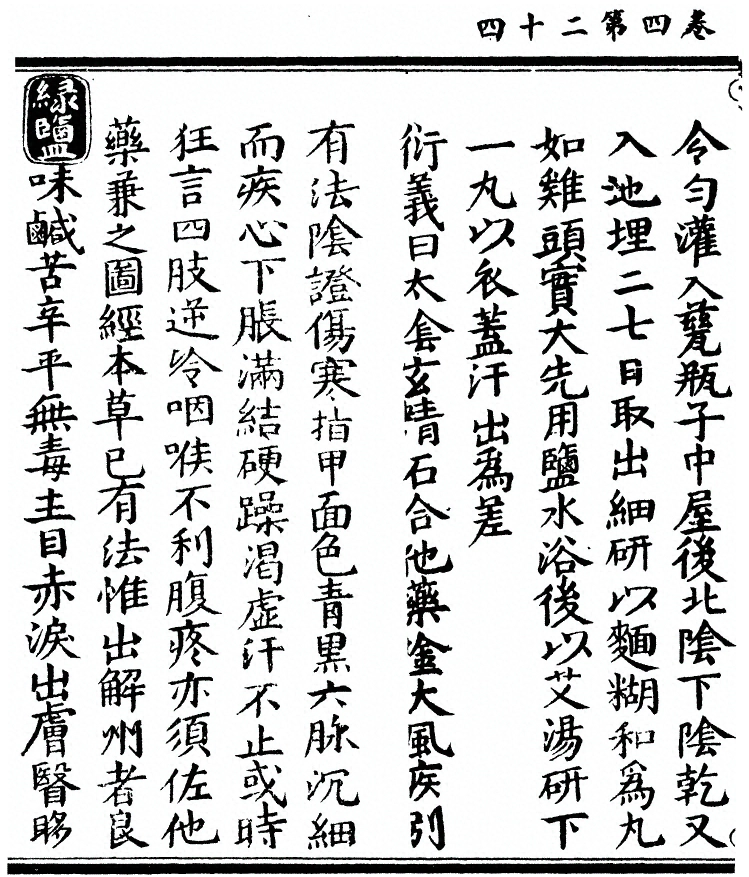 卷四第二十四
令勻灌入甆瓶子中屋後北陰下陰乾又
入池埋二七日取出細研以麵糊和為丸
如雞頭實大先用鹽水浴後以艾湯研下
一丸以衣蓋汗出為差
衍義曰太陰玄精石合他藥塗大風疾別
有法陰證傷寒指甲面色青黑六脉沉細
而疾心下脹滿結硬躁渴虛汗不止或時
狂言四肢逆冷咽喉不利腹疼亦須佐他
藥兼之圖經本草已有法惟出解州者良
綠鹽味鹹苦辛平無毒主目赤淚出膚瞖眵